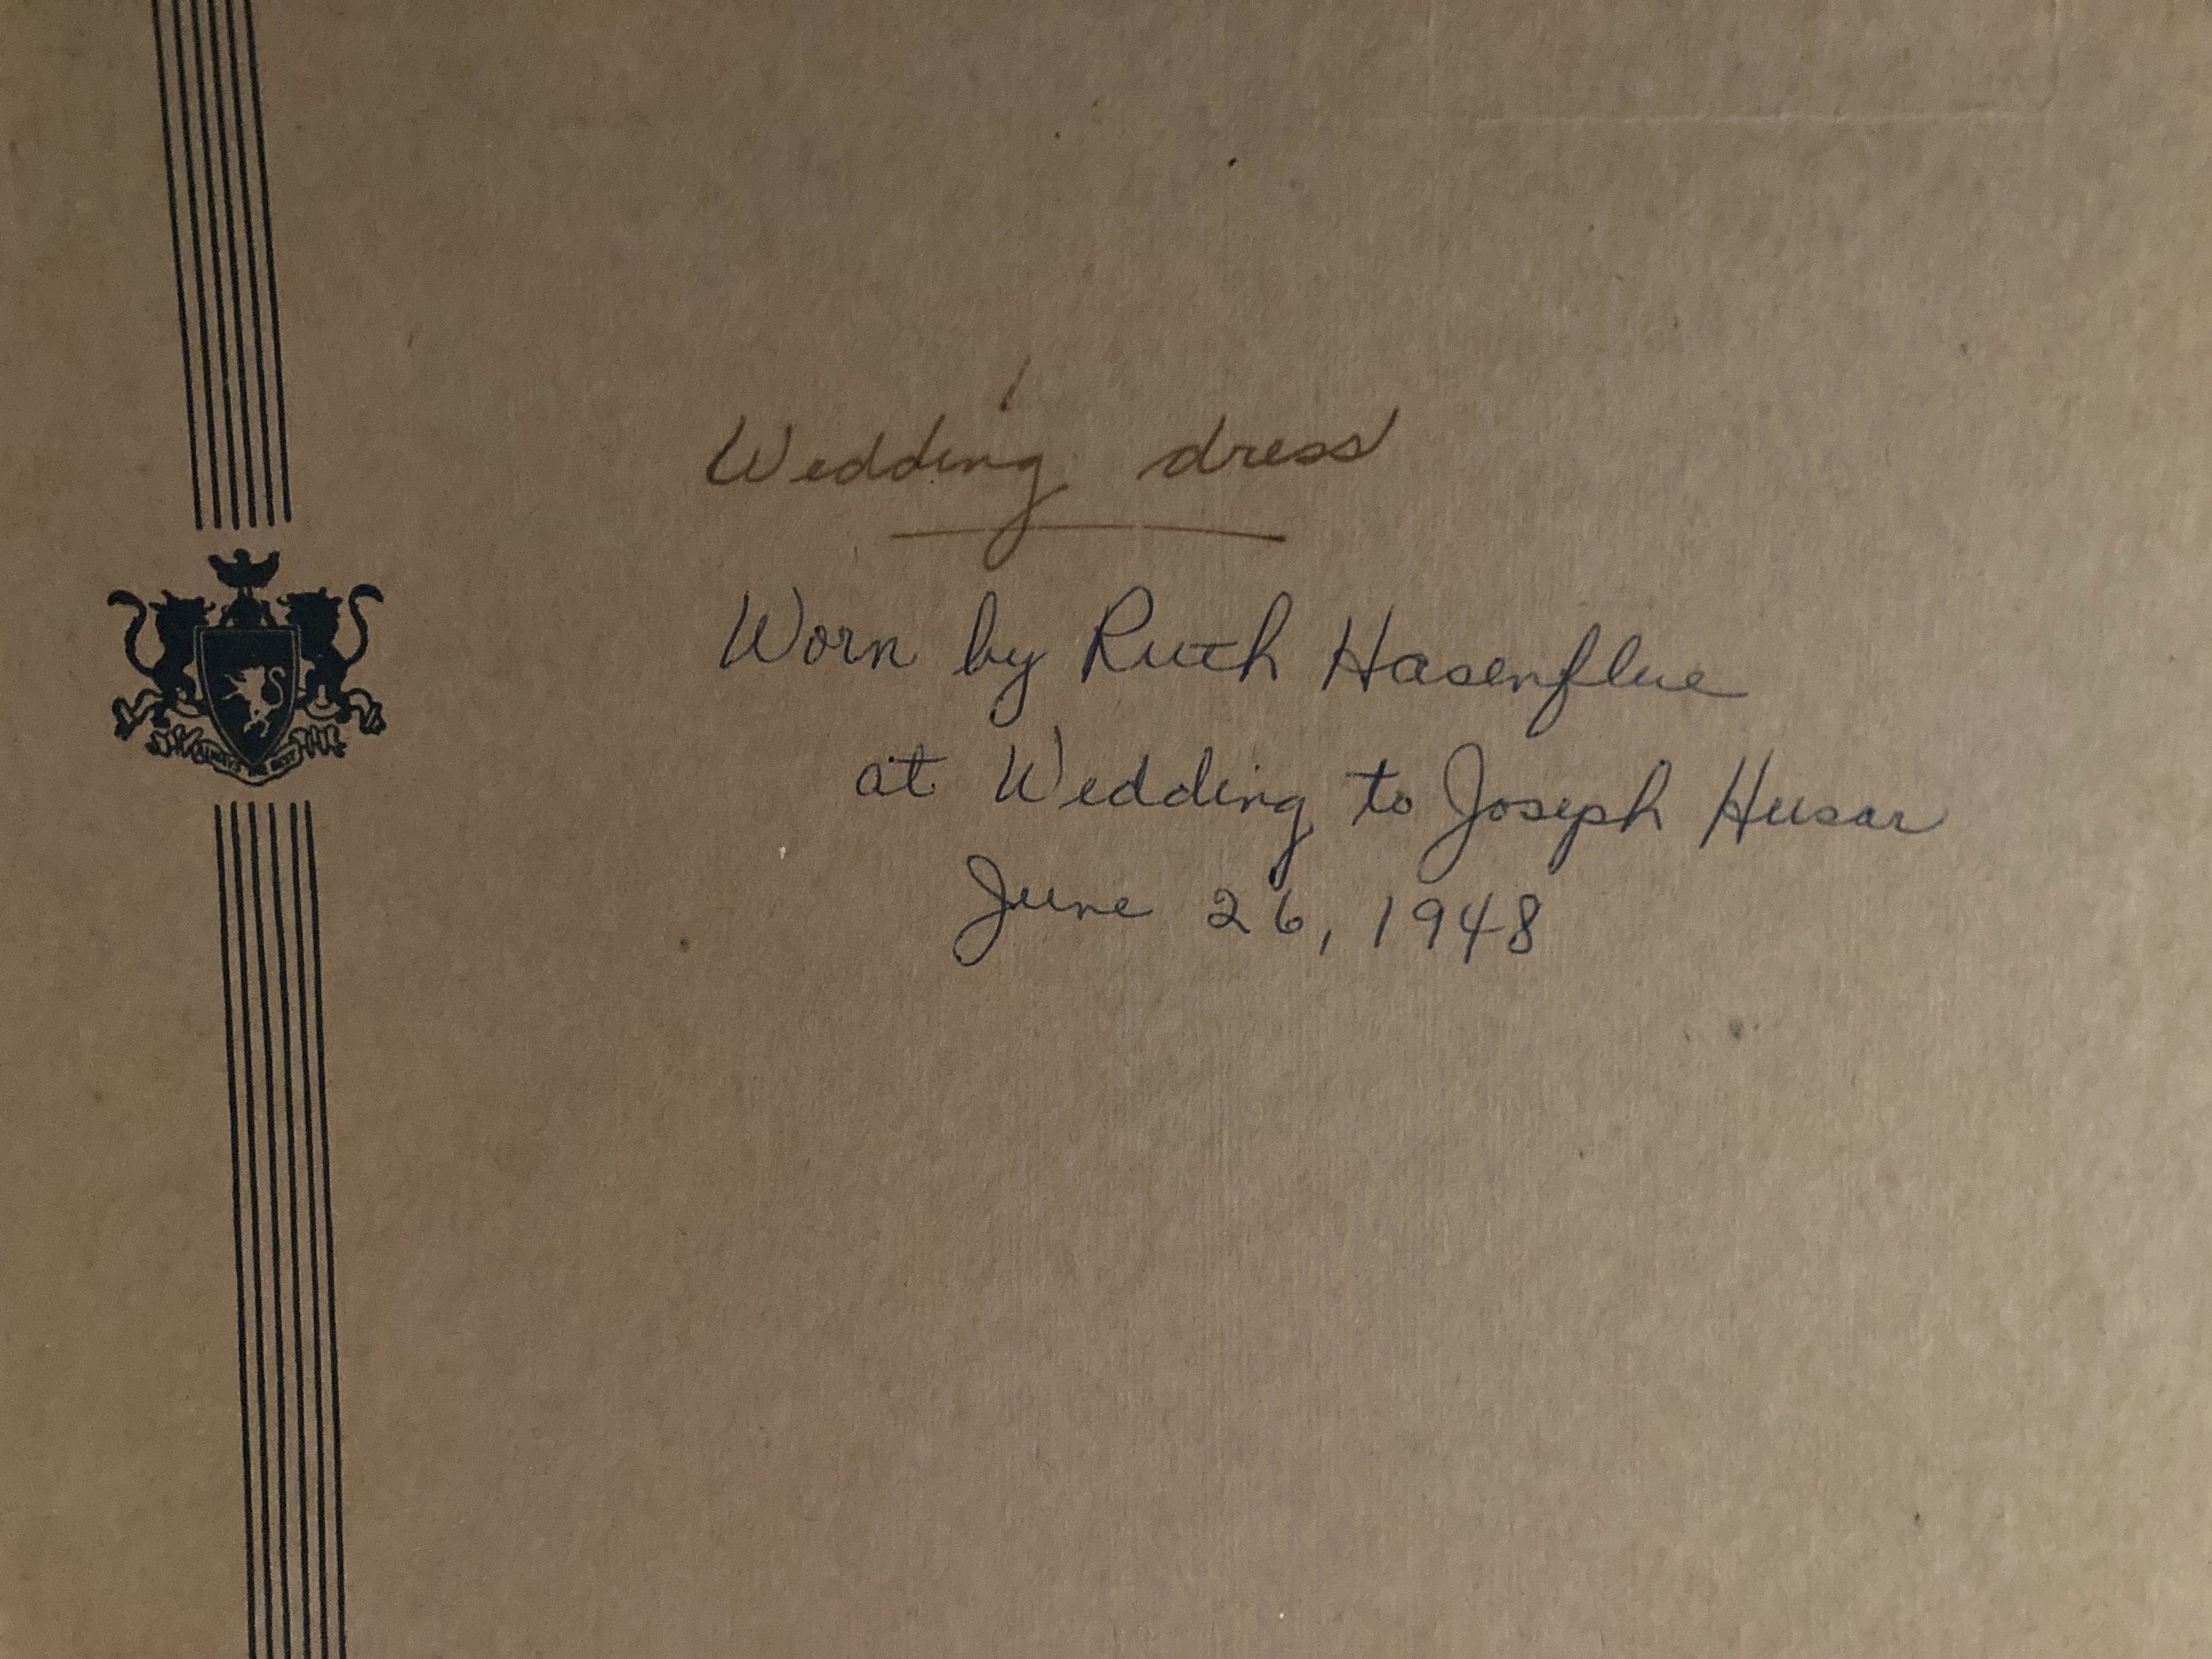 Wedding dress
Worn by Ruth Hasenflue
at Wedding to Joseph Husar
June 26, 1948
S
ALWAYS THE BEST